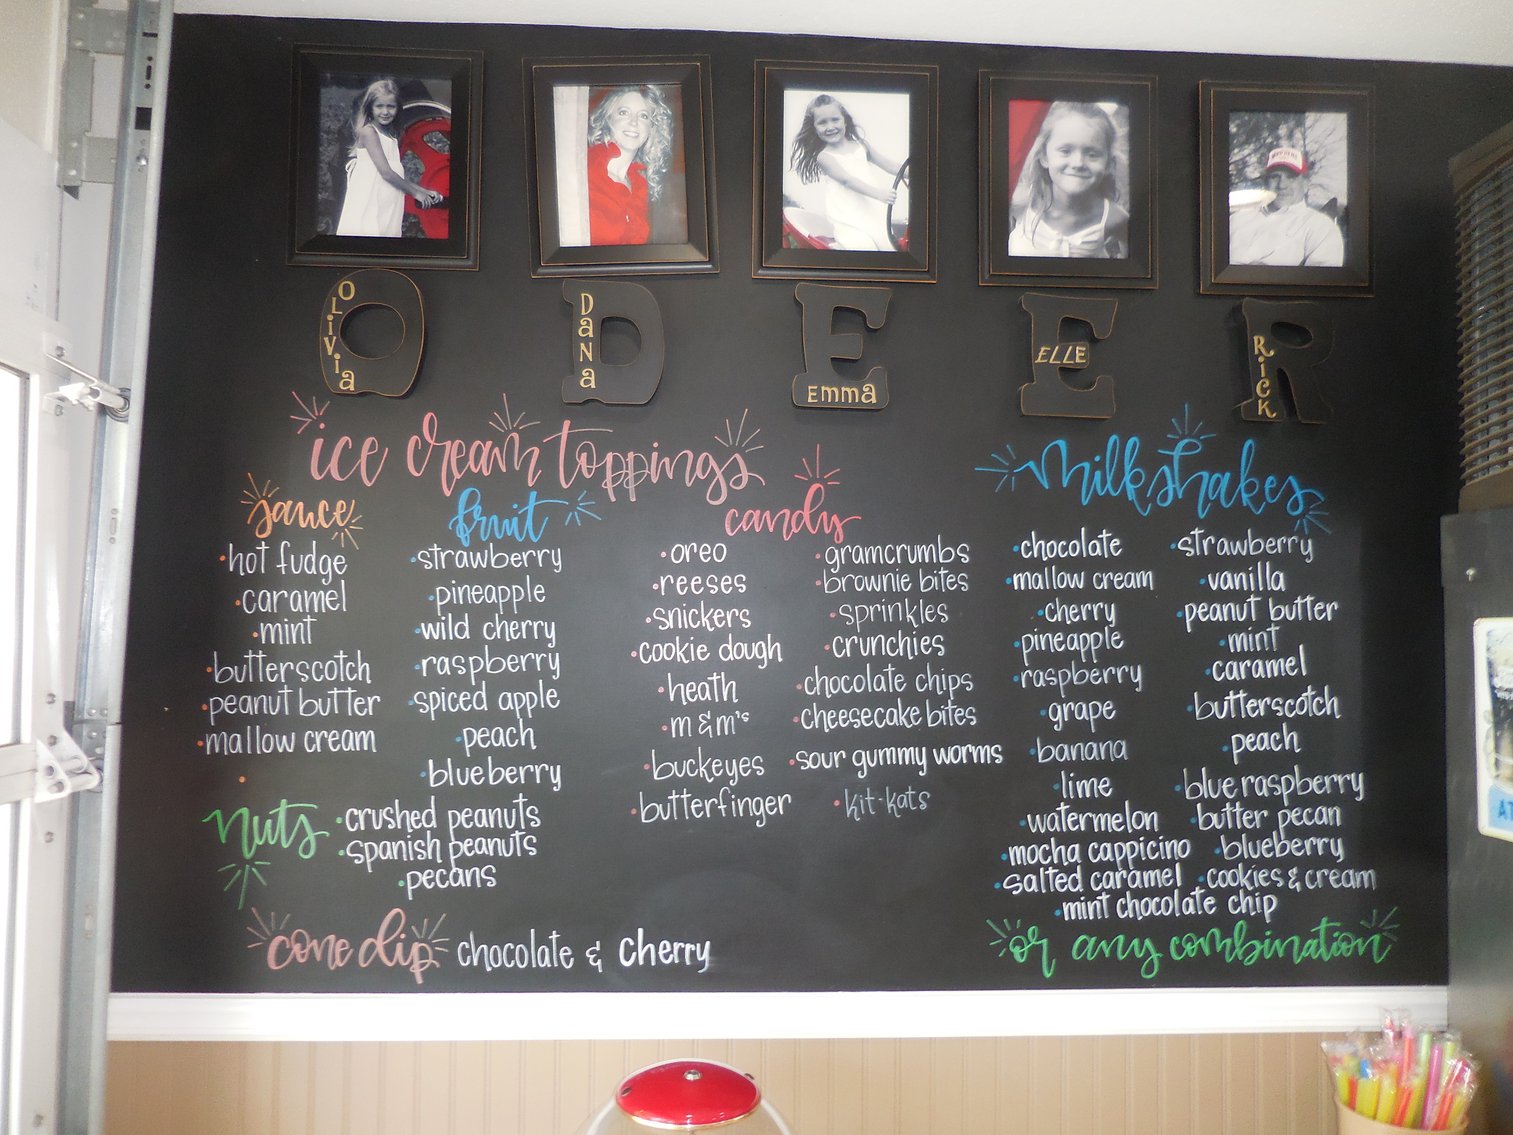 OLiVia
DaNa
Emma
ELLE
RicK
O D E E R
ice cream toppings
sauce
•hot fudge
•caramel
•mint
•butterscotch
•peanut butter
•mallow cream
•
fruit
•strawberry
•pineapple
•wild cherry
•raspberry
•spiced apple
•peach
•blueberry
nuts
•crushed peanuts
•spanish peanuts
•pecans
candy
•oreo
•reeses
•snickers
•cookie dough
•heath
•m & m's
•buckeyes
•butterfinger
•gramcrumbs
•brownie bites
•sprinkles
•crunchies
•chocolate chips
•cheesecake bites
•sour gummy worms
•kit-kats
cone dip chocolate & cherry
Milkshakes
•chocolate
•mallow cream
•cherry
•pineapple
•raspberry
•grape
•banana
•lime
•watermelon
•mocha cappicino
•salted caramel
•strawberry
•vanilla
•peanut butter
•mint
•caramel
•butterscotch
•peach
•blue raspberry
•butter pecan
•blueberry
•cookies & cream
•mint chocolate chip
or any combination